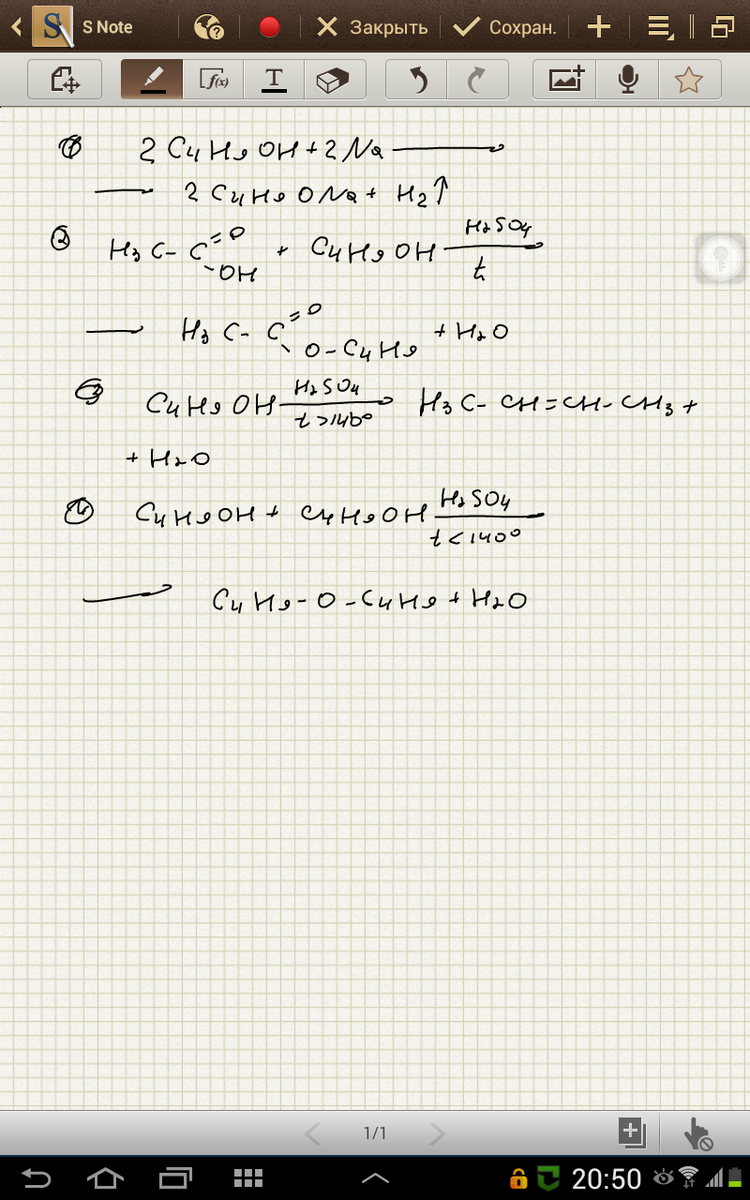 S Note
Закрыть
Сохран.
f(x)
T
① 2 C4H9OH + 2 Na ⟶
⟶ 2 C4H9ONa + H2↑
② H3C-C(=O)-OH + C4H9OH H2SO4/t ⟶
⟶ H3C-C(=O)-O-C4H9 + H2O
③ C4H9OH H2SO4/t>140° ⟶ H3C-CH=CH-CH3 +
+ H2O
④ C4H9OH + C4H9OH H2SO4/t<140°
⟶ C4H9-O-C4H9 + H2O
1/1
20:50